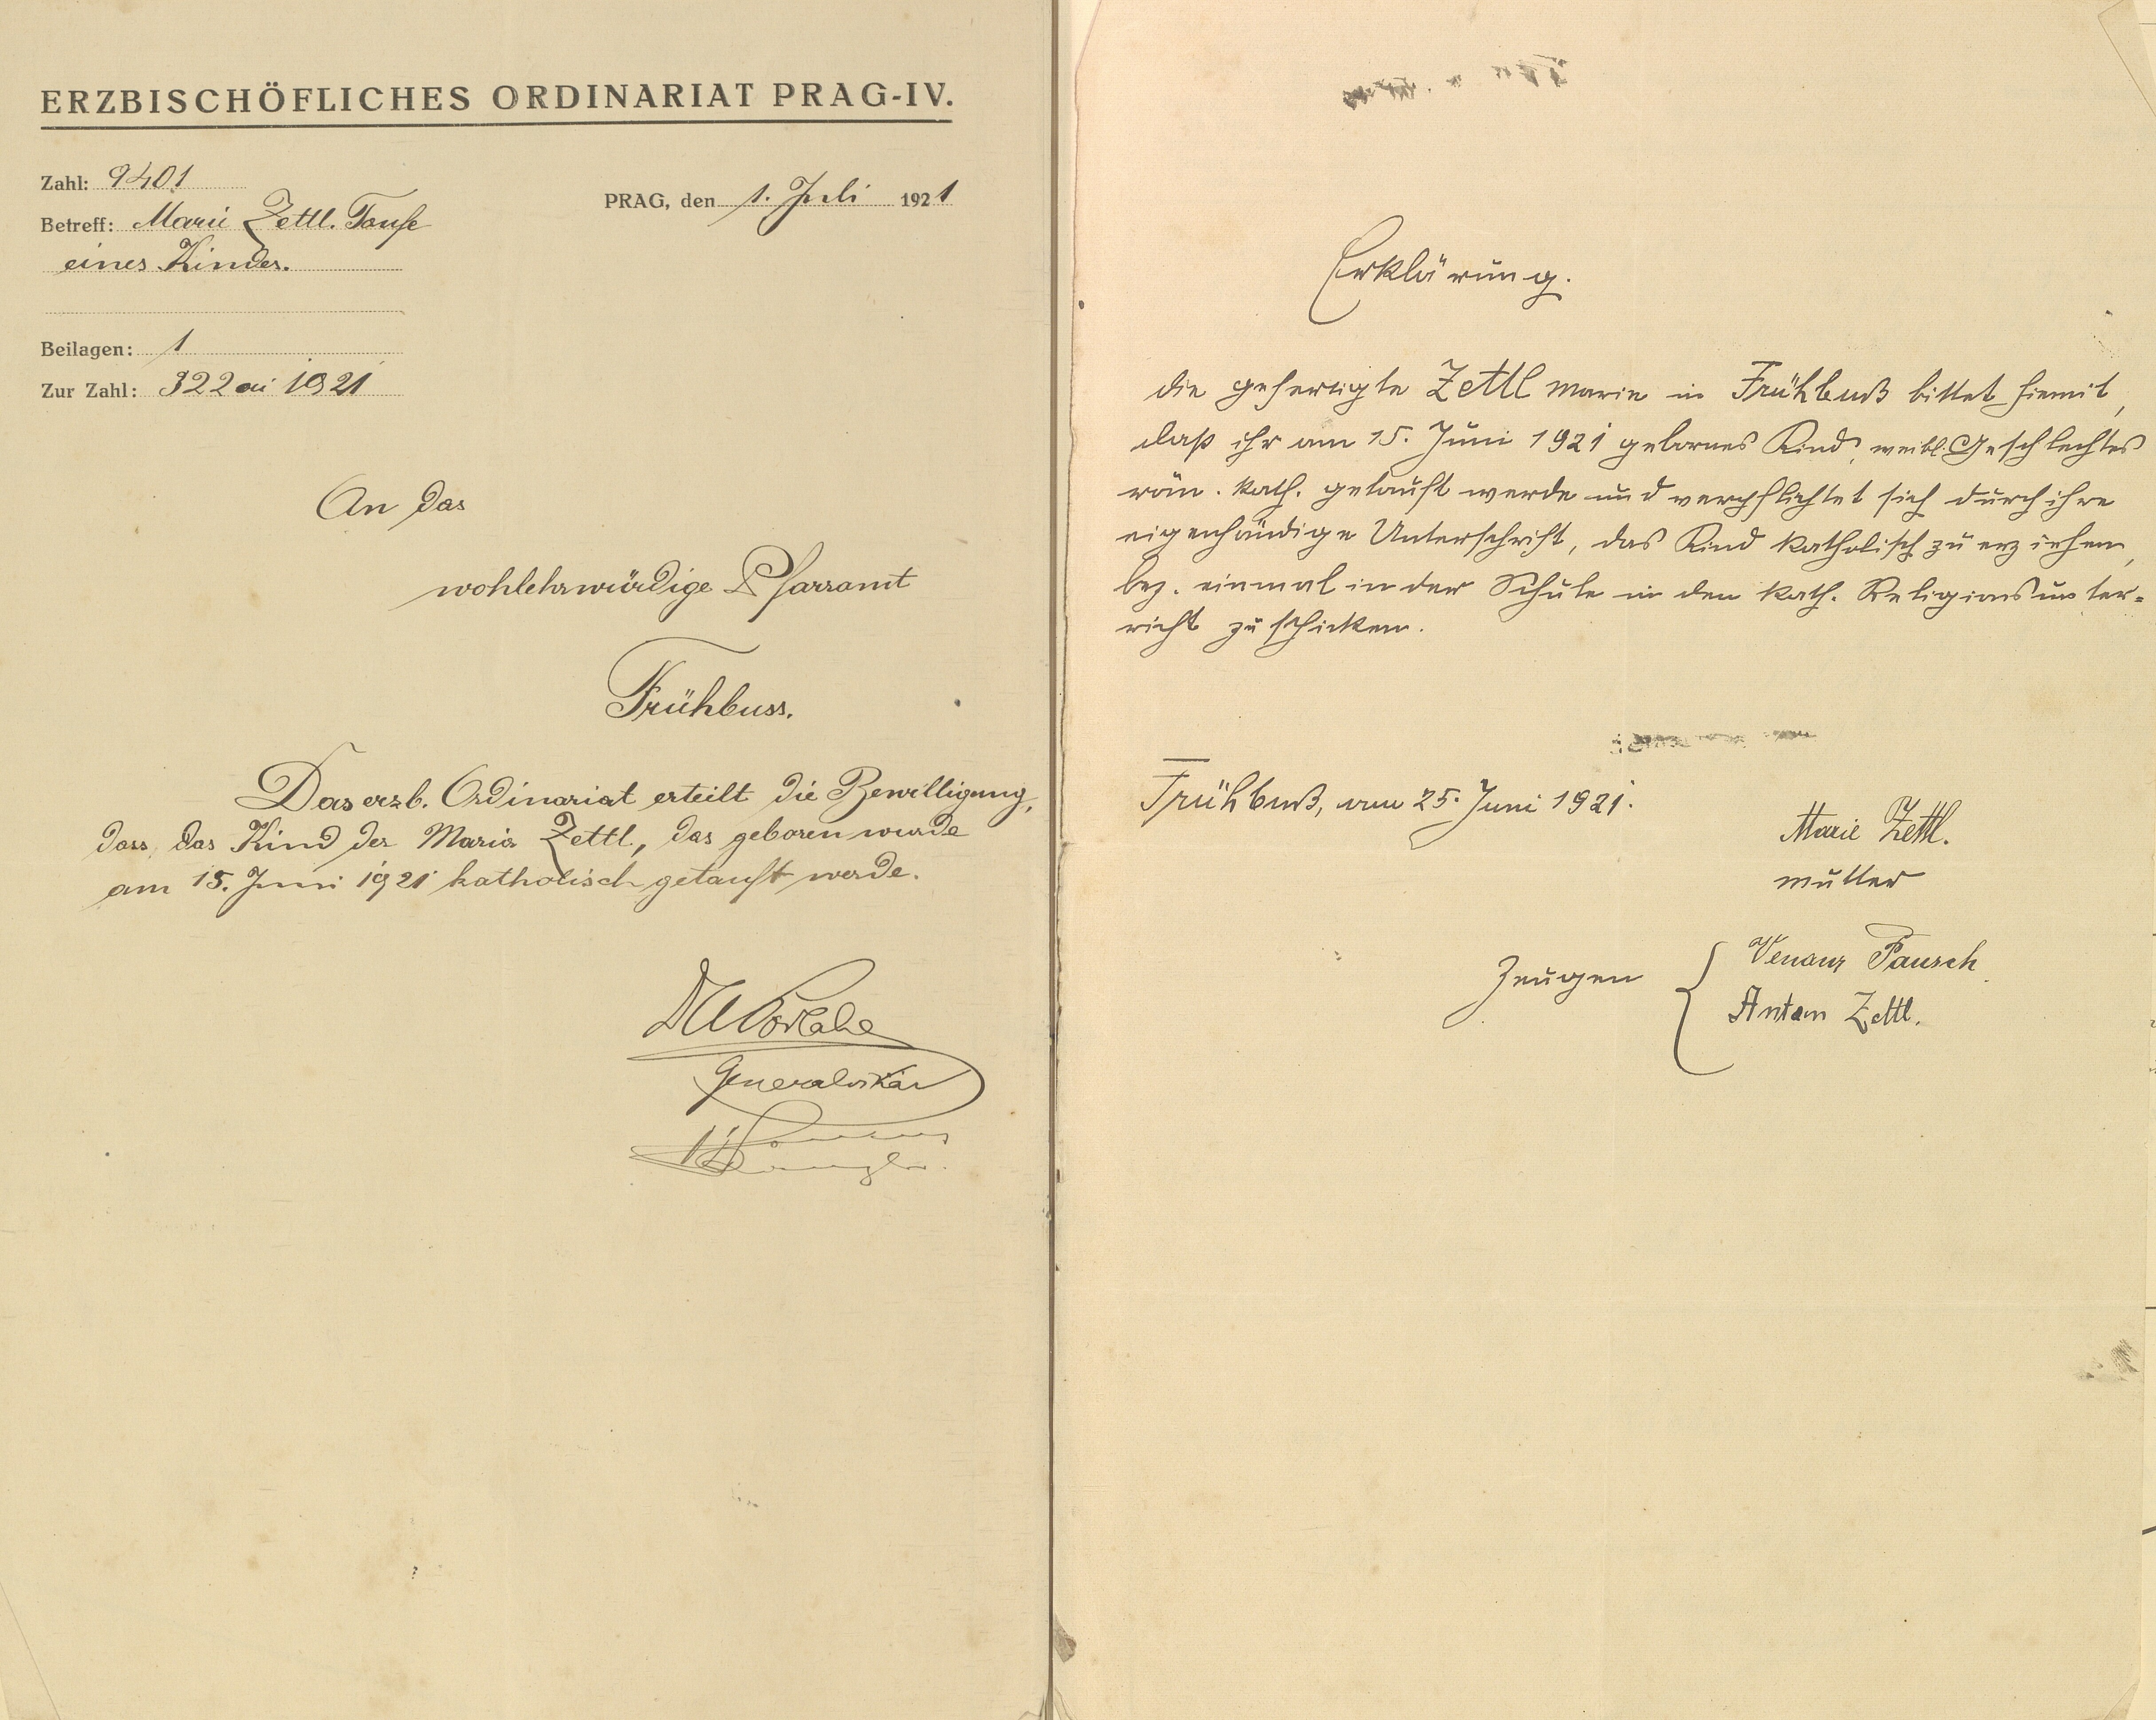 ERZBISCHÖFLICHES ORDINARIAT PRAG-IV.
Zahl: 9401
PRAG, den 1. Juli 1921
Betreff: Marie Zettl. Taufe
eines Kindes.
Beilagen: 1
Zur Zahl: 322 ai 1921
An das
wohlehrwürdige Pfarramt
Frühbuss.
Das erzb. Ordinariat erteilt die Bewilligung,
dass das Kind der Maria Zettl, das geboren wurde
am 15. Juni 1921 katholisch getauft werde.
Generalvikar
Erklärung.
die gefertigte Zettl Marie in Frühbuß bittet hiemit,
daß ihr am 15. Juni 1921 gebornes Kind, weibl. Geschlechtes
röm. kath. getauft werde und verpflichtet sich durch ihre
eigenhändige Unterschrift, das Kind katholisch zu erziehen,
bez. einmal in der Schule in den kath. Religionsunter-
richt zu schicken.
Frühbuß, am 25. Juni 1921.
Marie Zettl.
Mutter
Zeugen
Venanz Pausch
Anton Zettl.